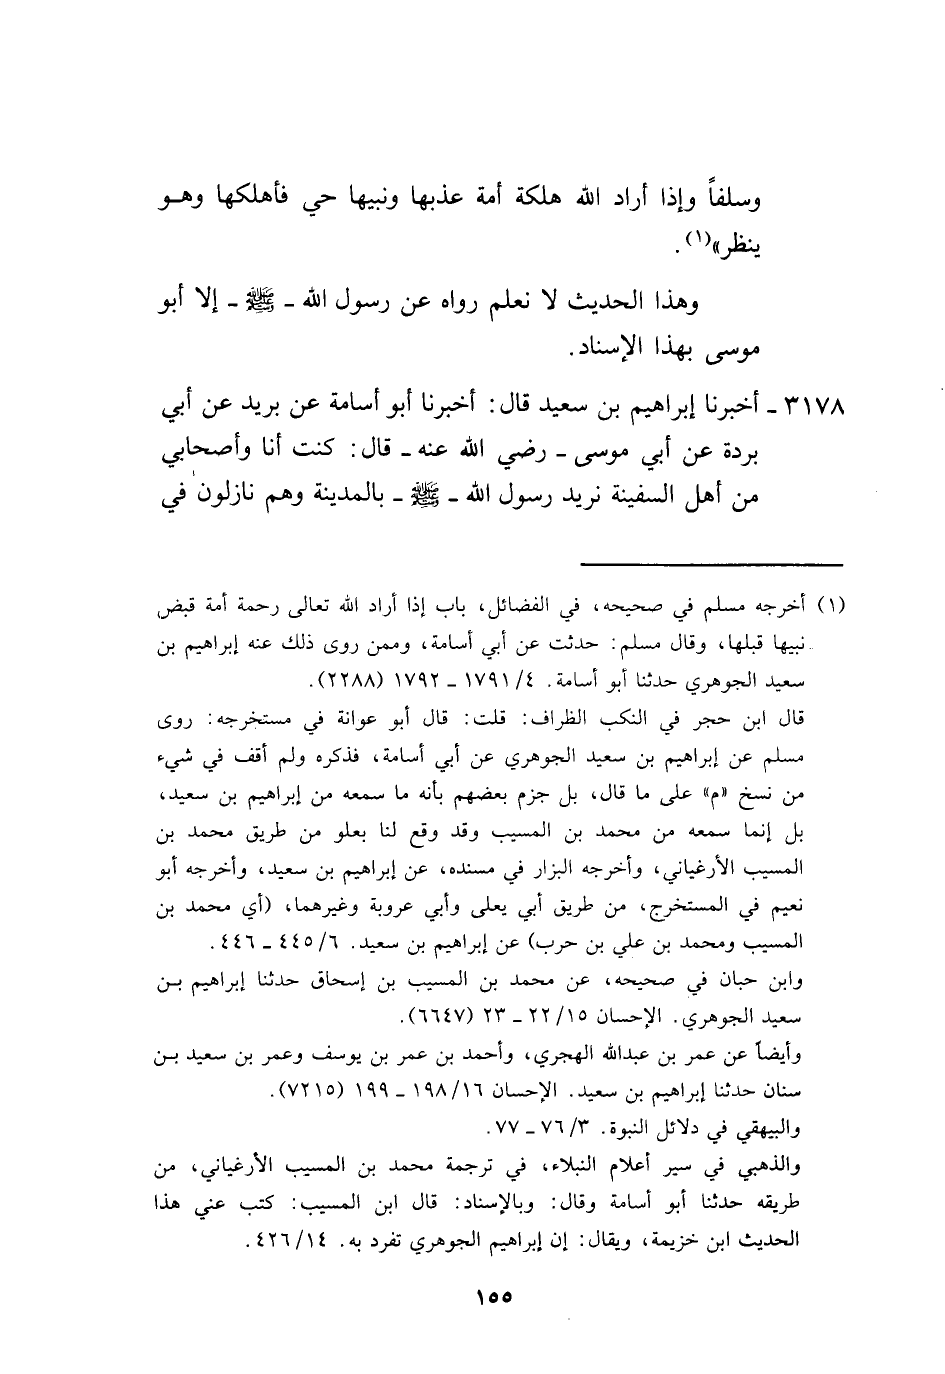 وسلفاً وإذا أراد الله هلكة أمة عذبها ونبيها حي فأهلكها وهـو
ينظر»(١).
وهذا الحديث لا نعلم رواه عن رسول الله ـ ﷺ ـ إلا أبو
موسى بهذا الإسناد.
٣١٧٨ ـ أخبرنا إبراهيم بن سعيد قال: أخبرنا أبو أسامة عن بريد عن أبي
بردة عن أبي موسى ـ رضي الله عنه ـ قال: كنت أنا وأصحابي
من أهل السفينة نريد رسول الله ـ ﷺ ـ بالمدينة وهم نازلون في
(١) أخرجه مسلم في صحيحه، في الفضائل، باب إذا أراد الله تعالى رحمة أمة قبض
نبيها قبلها، وقال مسلم: حدثت عن أبي أسامة، وممن روى ذلك عنه إبراهيم بن
سعيد الجوهري حدثنا أبو أسامة. ٤/ ١٧٩١ ـ ١٧٩٢ (٢٢٨٨).
قال ابن حجر في النكب الظراف: قلت: قال أبو عوانة في مستخرجه: روى
مسلم عن إبراهيم بن سعيد الجوهري عن أبي أسامة، فذكره ولم أقف في شيء
من نسخ «م» على ما قال، بل جزم بعضهم بأنه ما سمعه من إبراهيم بن سعيد،
بل إنما سمعه من محمد بن المسيب وقد وقع لنا بعلو من طريق محمد بن
المسيب الأرغياني، وأخرجه البزار في مسنده، عن إبراهيم بن سعيد، وأخرجه أبو
نعيم في المستخرج، من طريق أبي يعلى وأبي عروبة وغيرهما، (أي محمد بن
المسيب ومحمد بن علي بن حرب) عن إبراهيم بن سعيد. ٦/ ٤٤٥ ـ ٤٤٦.
وابن حبان في صحيحه، عن محمد بن المسيب بن إسحاق حدثنا إبراهيم بـن
سعيد الجوهري. الإحسان ١٥/ ٢٢ ـ ٢٣ (٦٦٤٧).
وأيضاً عن عمر بن عبدالله الهجري، وأحمد بن عمر بن يوسف وعمر بن سعيد بـن
سنان حدثنا إبراهيم بن سعيد. الإحسان ١٦/ ١٩٨ ـ ١٩٩ (٧٢١٥).
والبيهقي في دلائل النبوة. ٣/ ٧٦ ـ ٧٧.
والذهبي في سير أعلام النبلاء، في ترجمة محمد بن المسيب الأرغياني، من
طريقه حدثنا أبو أسامة وقال: وبالإسناد: قال ابن المسيب: كتب عني هذا
الحديث ابن خزيمة، ويقال: إن إبراهيم الجوهري تفرد به. ١٤/ ٤٢٦.
١٥٥